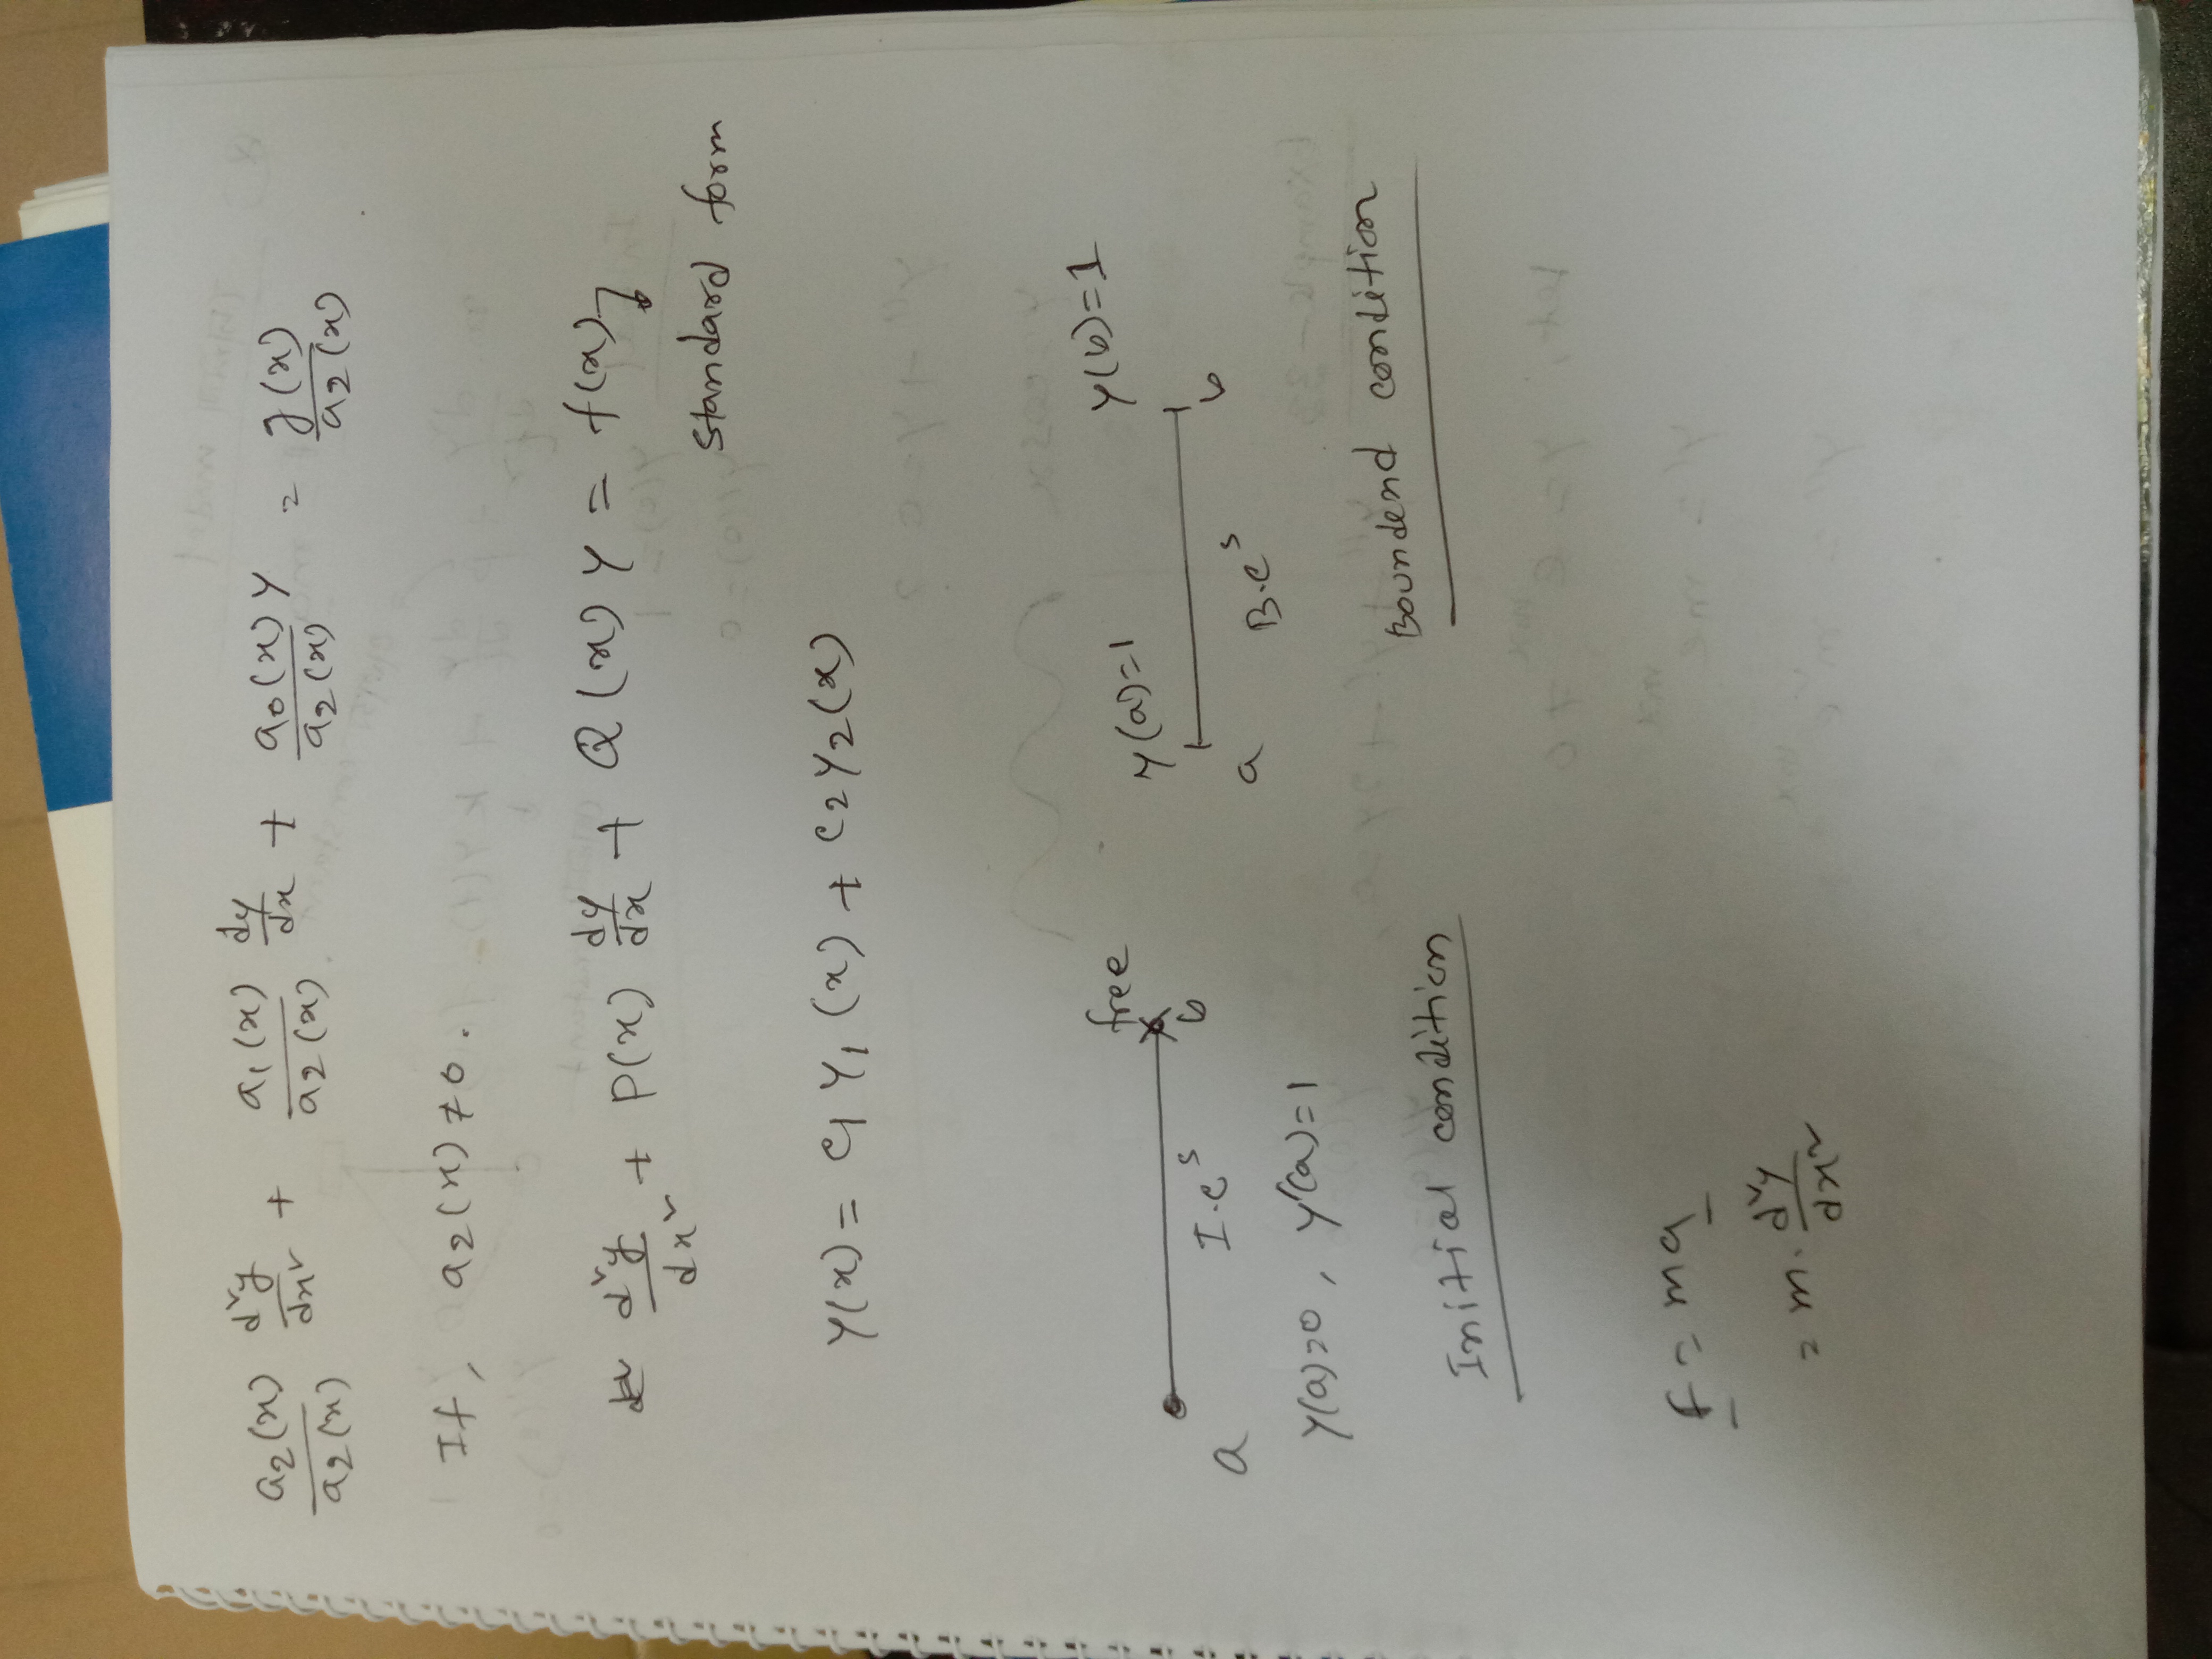 a₂(x)/a₂(x) d²y/dx² + a₁(x)/a₂(x) dy/dx + a₀(x)/a₂(x) y = g(x)/a₂(x)
If, a₂(x) ≠ 0.
d²y/dx² + P(x) dy/dx + Q(x) y = f(x)
Standard form
y(x) = c₁ y₁(x) + c₂ y₂(x)
free
a b
I.cˢ
y(a)=0, y'(a)=1
Initial condition
y(a)=1 y(b)=1
a b
B.cˢ
Boundend condition
f = ma
= m. d²y/dx²